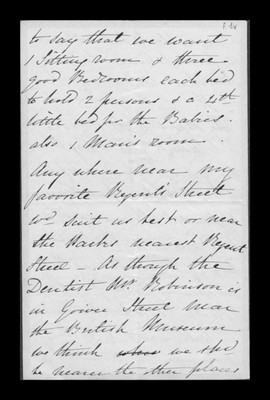 to say that we want
1 Sitting room & three
good Bedrooms each bed
to hold 2 persons & a 4th
little bed for the Babies.
also 1 Man's room.
Any where near my
favorite Regents Street
wd suit us best or near
the Parks nearest Regent
Street - As though the
Dentist Mr Robinson is
in Gower Street near
the British Museum
we think we shd
be nearer the other places